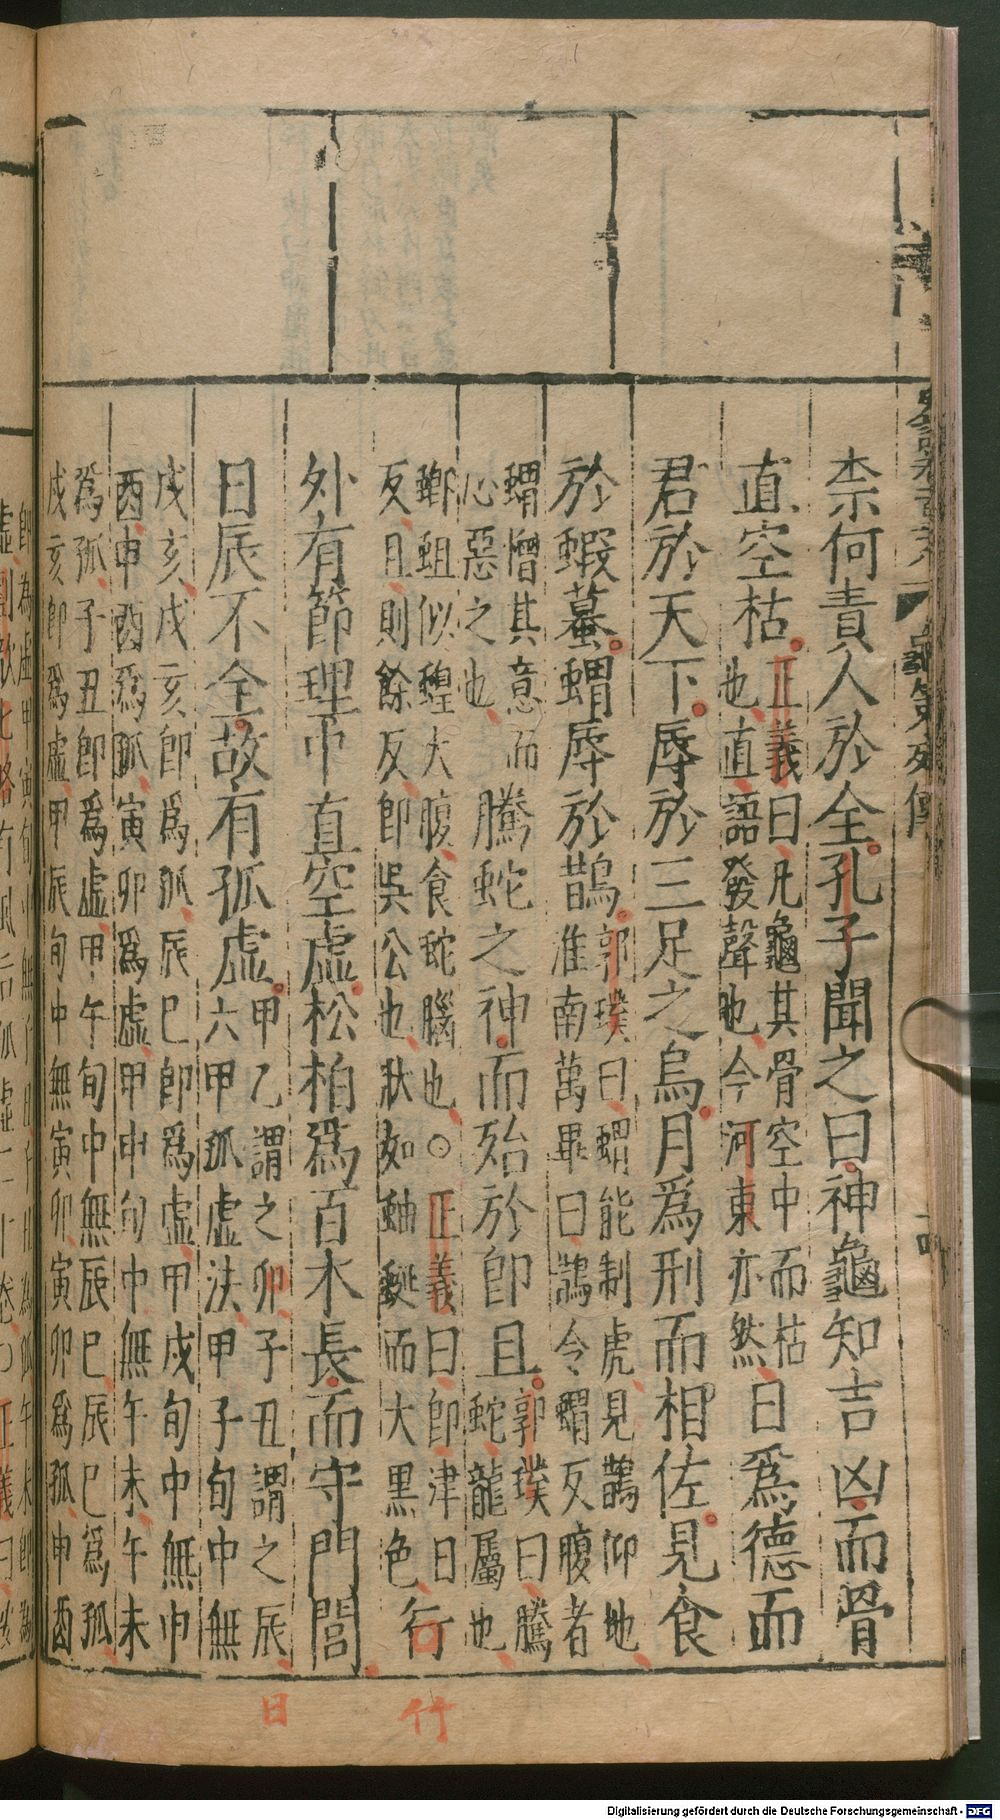 柰何責人於全孔子聞之曰神龜知吉凶而骨
直空枯
正義曰凡龜其骨空中而枯
也直語發聲也今河東亦然
日爲德而
君於天下辱於三足之烏月爲刑而相佐見食
於蝦蟇蝟辱於鵲
郭璞曰蝟能制虎見鵲仰地
淮南萬畢曰鵲令蝟反腹者
蝟憎其意而
心惡之也
騰蛇之神而殆於即且
郭璞曰騰
蛇龍屬也
蝍蛆似蝗大腹食蛇腦也○正義曰即津日
反且則餘反即吳公也狀如蚰蜒而大黑色
行
外有節理中直空虛松柏爲百木長而守門閭
日辰不全故有孤虛
甲乙謂之卯子丑謂之辰
六甲孤虛法甲子旬中無
戌亥戌亥即爲孤辰巳即爲虛甲戌旬中無申
酉申酉爲孤寅卯爲虛甲申旬中無午未午未
爲孤子丑即爲虛甲午旬中無辰巳辰巳爲孤
戌亥即爲虛甲辰旬中無寅卯寅卯爲孤申酉
竹
日
Digitalisierung gefördert durch die Deutsche Forschungsgemeinschaft - DFG